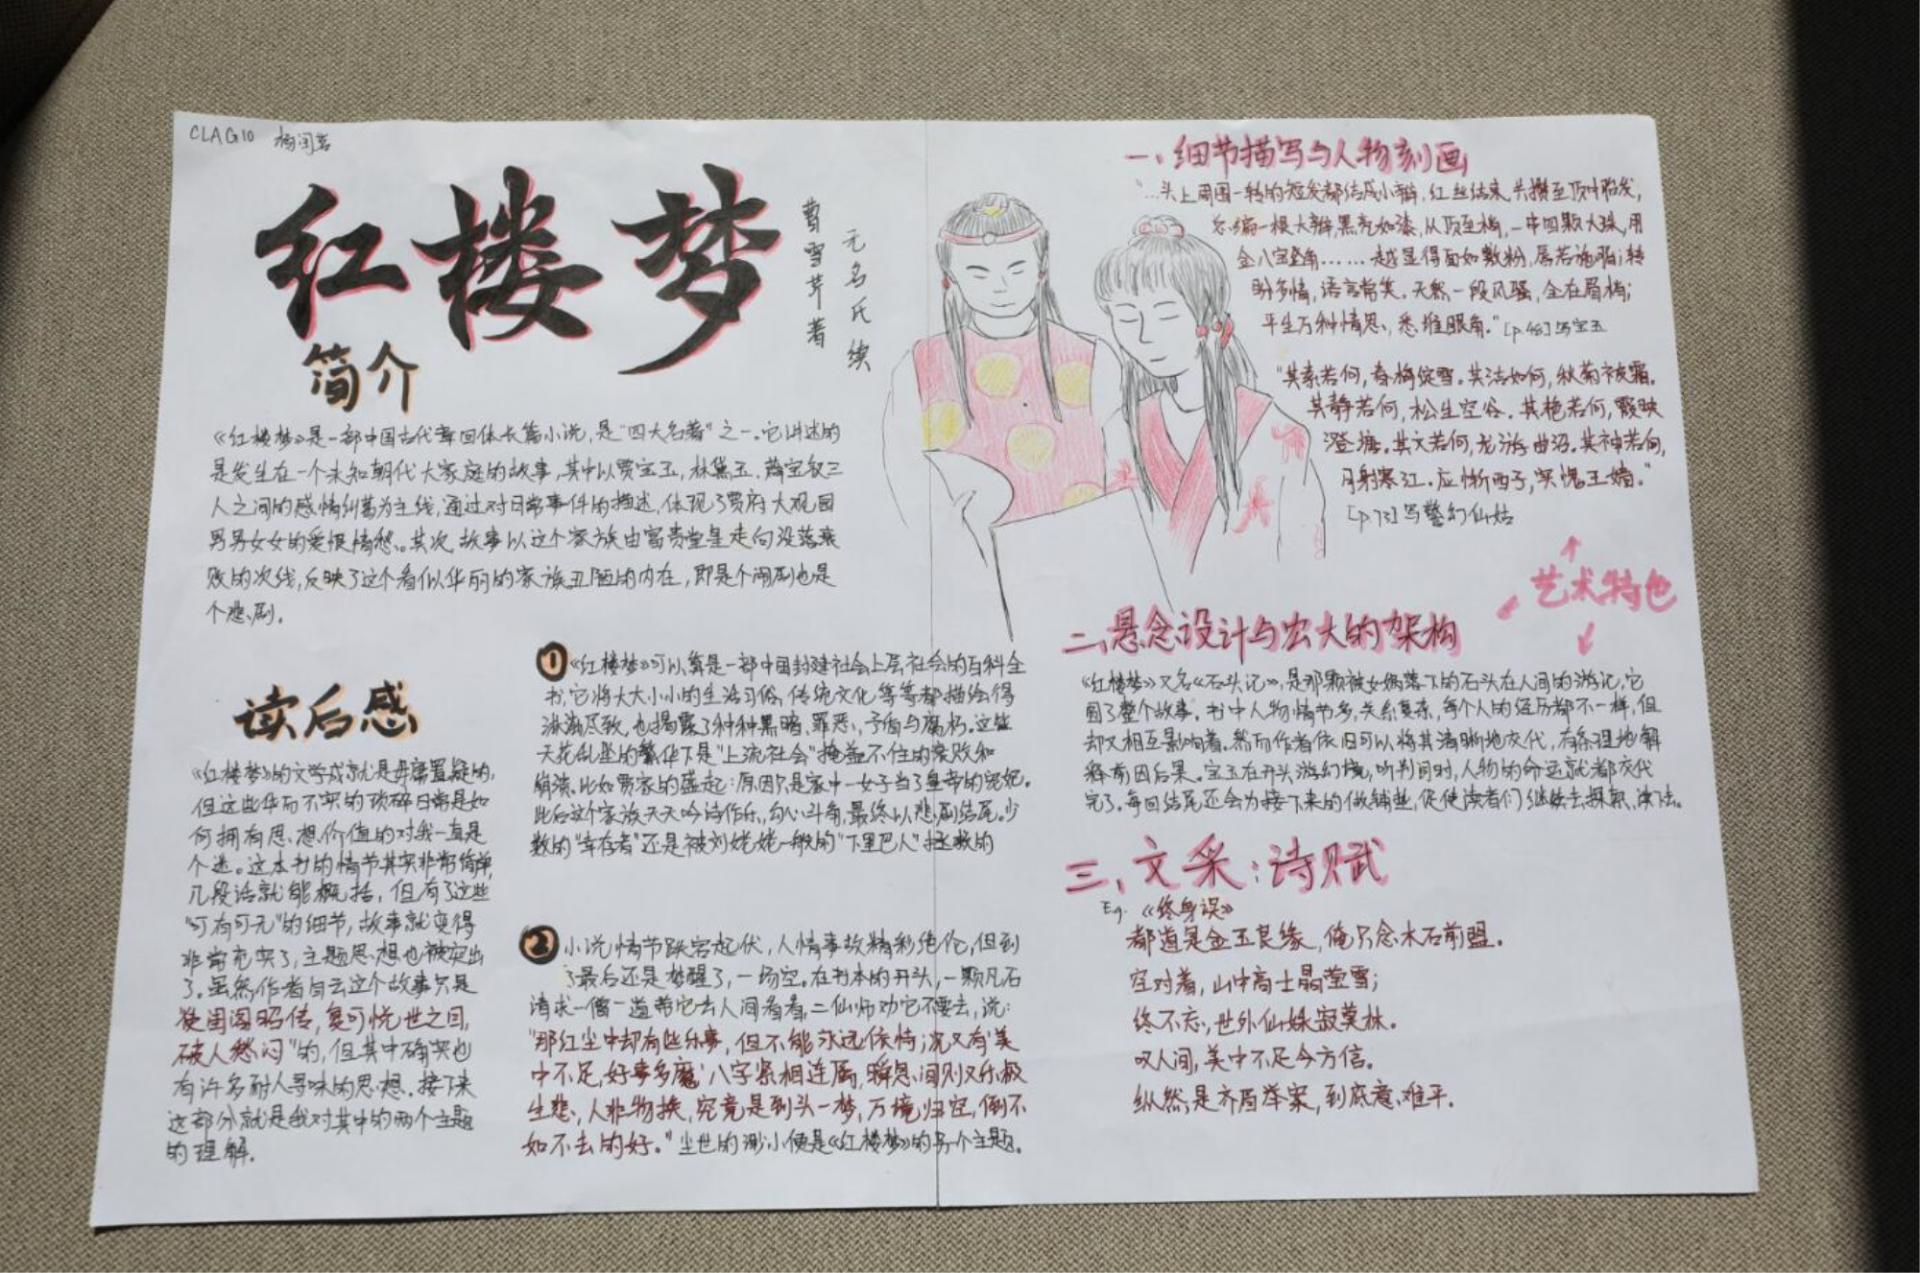 CLAG10
红楼梦
曹雪芹著
无名氏续
简介
《红楼梦》是一部中国古代章回体长篇小说,是“四大名著”之一。它讲述的
是发生在一个未知朝代大家庭的故事,其中以贾宝玉,林黛玉,薛宝钗三
人之间的感情纠葛为主线,通过对日常事件的描述,体现了贾府大观园
男男女女的爱恨情愁。其次,故事以这个家族由富贵堂皇走向没落衰
败的次线,反映了这个看似华丽的家族丑陋的内在,即是个闹剧也是
个悲剧。
读后感
《红楼梦》的文学成就是毋庸置疑的,
但这些华而不实的琐碎日常是如
何拥有思想价值的对我一直是
个迷。这本书的情节其实非常简单,
几段话就能概括,但有了这些
“可有可无”的细节,故事就变得
非常充实了,主题思想也被突出
了。虽然作者自云这个故事只是
使闺阁昭传,复可悦世之目,
破人愁闷”的,但其中确实也
有许多耐人寻味的思想。接下来
这部分就是我对其中的两个主题
的理解。
1 《红楼梦》可以算是一部中国封建社会上层社会的百科全
书,它将大大小小的生活习俗,传统文化等等都描绘得
淋漓尽致,也揭露了种种黑暗、罪恶、矛盾与腐朽。这些
天花乱坠的繁华下是“上流社会”掩盖不住的衰败和
崩溃。比如贾家的盛起:原因只是家中一女子当了皇帝的宠妃。
此后这个家族天天吟诗作乐,勾心斗角,最终以悲剧结尾。少
数的“幸存者”还是被刘姥姥一般的“下里巴人”拯救的
2 小说情节跌宕起伏,人情事故精彩绝伦,但到
了最后还是梦醒了,一场空。在书本的开头,一颗凡石
请求一僧一道带它去人间看看,二仙师劝它不要去,说:
“那红尘中却有些乐事,但不能永远依恃;况又有‘美
中不足,好事多魔’八字紧相连属,瞬息间则又乐极
生悲,人非物换,究竟是到头一梦,万境归空,倒不
如不去的好。”尘世的渺小便是《红楼梦》的另个主题。
一、细节描写与人物刻画
“…头上周围一转的短发都结成小辫,红丝结束,共攒至顶中胎发,
总编一根大辫,黑亮如漆,从顶至梢,一串四颗大珠,用
金八宝坠角……越显得面如敷粉,唇若施脂;转
盼多情,语言常笑。天然一段风骚,全在眉梢;
平生万种情思,悉堆眼角。”[p.48]写宝玉
“其素若何,春梅绽雪。其洁如何,秋菊被霜。
其静若何,松生空谷。其艳若何,霞映
澄塘。其文若何,龙游曲沼。其神若何,
月射寒江。应惭西子,实愧王嫱。”
[p.73]写警幻仙姑
艺术特色
二、悬念设计与宏大的架构
《红楼梦》又名《石头记》,是那颗被女娲落下的石头在人间的游记,它
圆了整个故事。书中人物情节多,关系复杂,每个人的经历都不一样,但
却又相互影响着。然而作者依旧可以将其清晰地交代,有条理地解
释前因后果。宝玉在开头游幻境,听判词时,人物的命运就都交代
完了。每回结尾还会为接下来的做铺垫,促使读者们继续去探索、读下去。
三、文采:诗赋
Eg. 《终身误》
都道是金玉良缘,俺只念木石前盟。
空对着,山中高士晶莹雪;
终不忘,世外仙姝寂寞林。
叹人间,美中不足今方信。
纵然是齐眉举案,到底意难平。